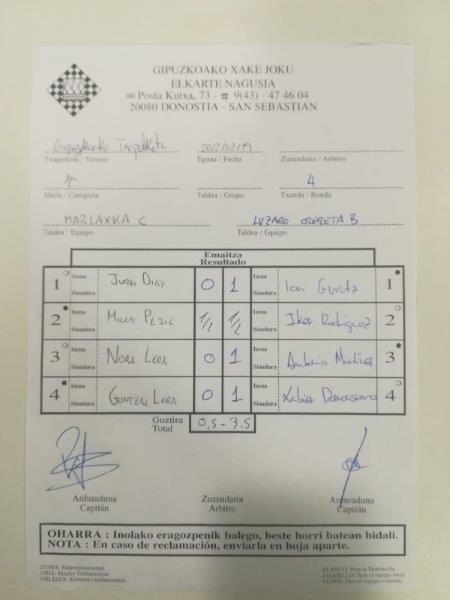 GIPUZKOAKO XAKE JOKU
ELKARTE NAGUSIA
✉ Posta Kutxa, 73 - ☎ 9(43) - 47 46 04
20080 DONOSTIA - SAN SEBASTIAN
Gipuzkoako Txapelketa 2022/02/19
Txapelketa / Torneo Eguna / Fecha Zuzendaria / Arbitro
4
Maila / Categoria Taldea / Grupo Txanda / Ronda
MARLAXKA C LUZARO ORERETA B
Taldea / Equipo Taldea / Equipo
Emaitza
Resultado
1 Izena Sinadura 0 1 Ion Gurutz 1
2 Izena Sinadura 1/2 1/2 Iker Rodriguez 2
3 Izena Sinadura NORA LERA 0 1 Antonio Martinez 3
4 Izena Sinadura GONTZAL LERA 0 1 Xabier 4
Guztira
Total 0,5 - 3,5
Arduraduna Zuzendaria Arduraduna
Capitán Arbitro Capitán
OHARRA : Inolako eragozpenik balego, beste horri batean bidali.
NOTA : En caso de reclamación, enviarla en hoja aparte.
ZURIA: Federazioarentzat. BLANCO: Para la Federación.
ORIA: Etxeko Taldearentzat AMARILLO: Para el equipo local
ORLEGIA: Kanpoko taldearentzat. VERDE: Para el equipo visitante.